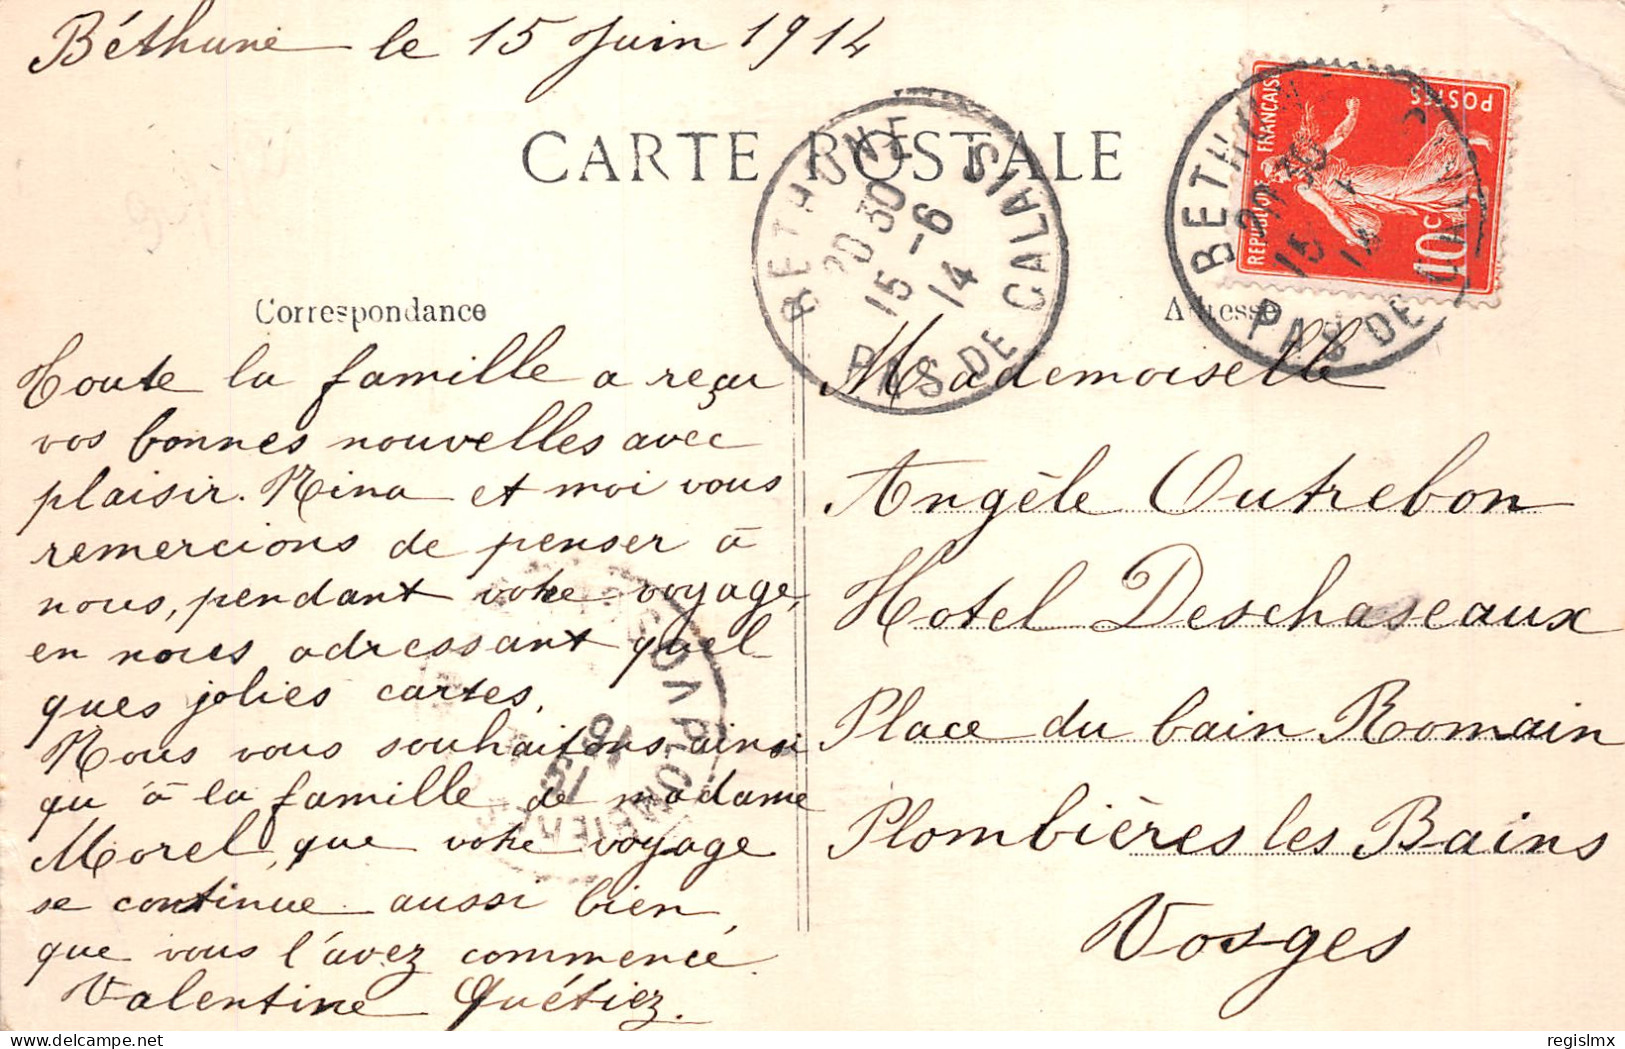 Béthune le 15 Juin 1914
CARTE POSTALE
BETHUNE
20 30
15 -6
14
PAS DE CALAIS
BETHUNE
15
14
PAS DE CALAIS
REPUBLIQUE FRANÇAISE
POSTES
10c
Correspondance
Toute la famille a reçu
vos bonnes nouvelles avec
plaisir. Nina et moi vous
remercions de penser à
nous, pendant votre voyage,
en nous adressant quel
ques jolies cartes.
Nous vous souhaitons ainsi
qu'à la famille de madame
Morel, que votre voyage
se continue aussi bien
que vous l'avez commencé.
Valentine Quétiez.
Adresse
Mademoiselle
Angèle Outrebon
Hotel Deschaseaux
Place du bain Romain
Plombières les Bains
Vosges
PLOMBIERES
VOSGES
16
delcampe.net
regislmx